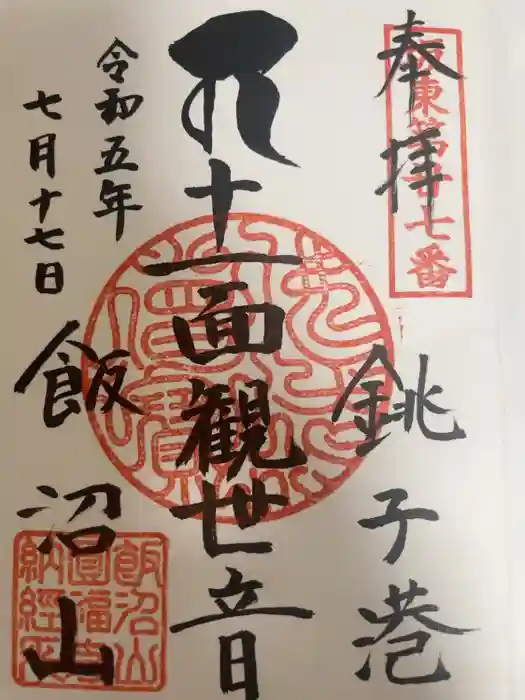 奉拝
坂東第廿七番
銚子港
十一面観世音
令和五年
七月十七日
飯沼山
飯沼山
圓福寺
納経之